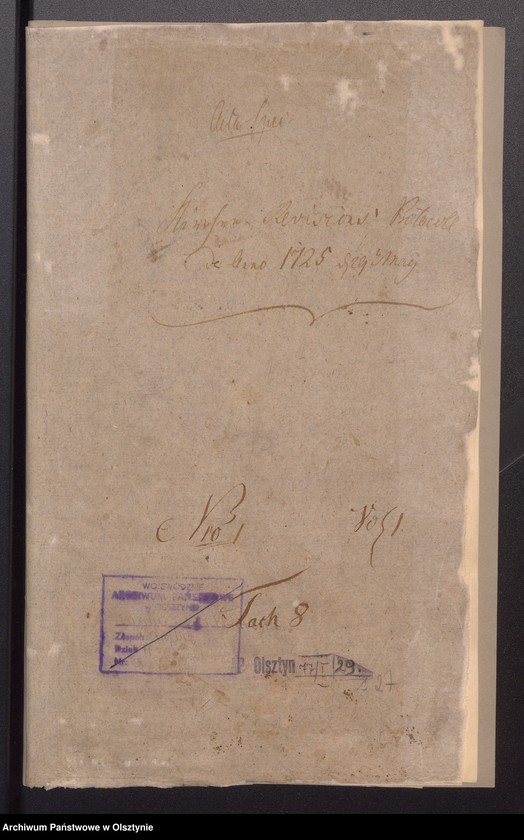 Acta Spec
Kirchen Revisions Protocoll
de Anno 1725
Nro 1
Vol 1.
Fach 8
WOJEWÓDZKIE
ARCHIWUM PAŃSTWOWE
Zespół
Dział
Nr
Olsztyn
29.
27
Archiwum Państwowe w Olsztynie